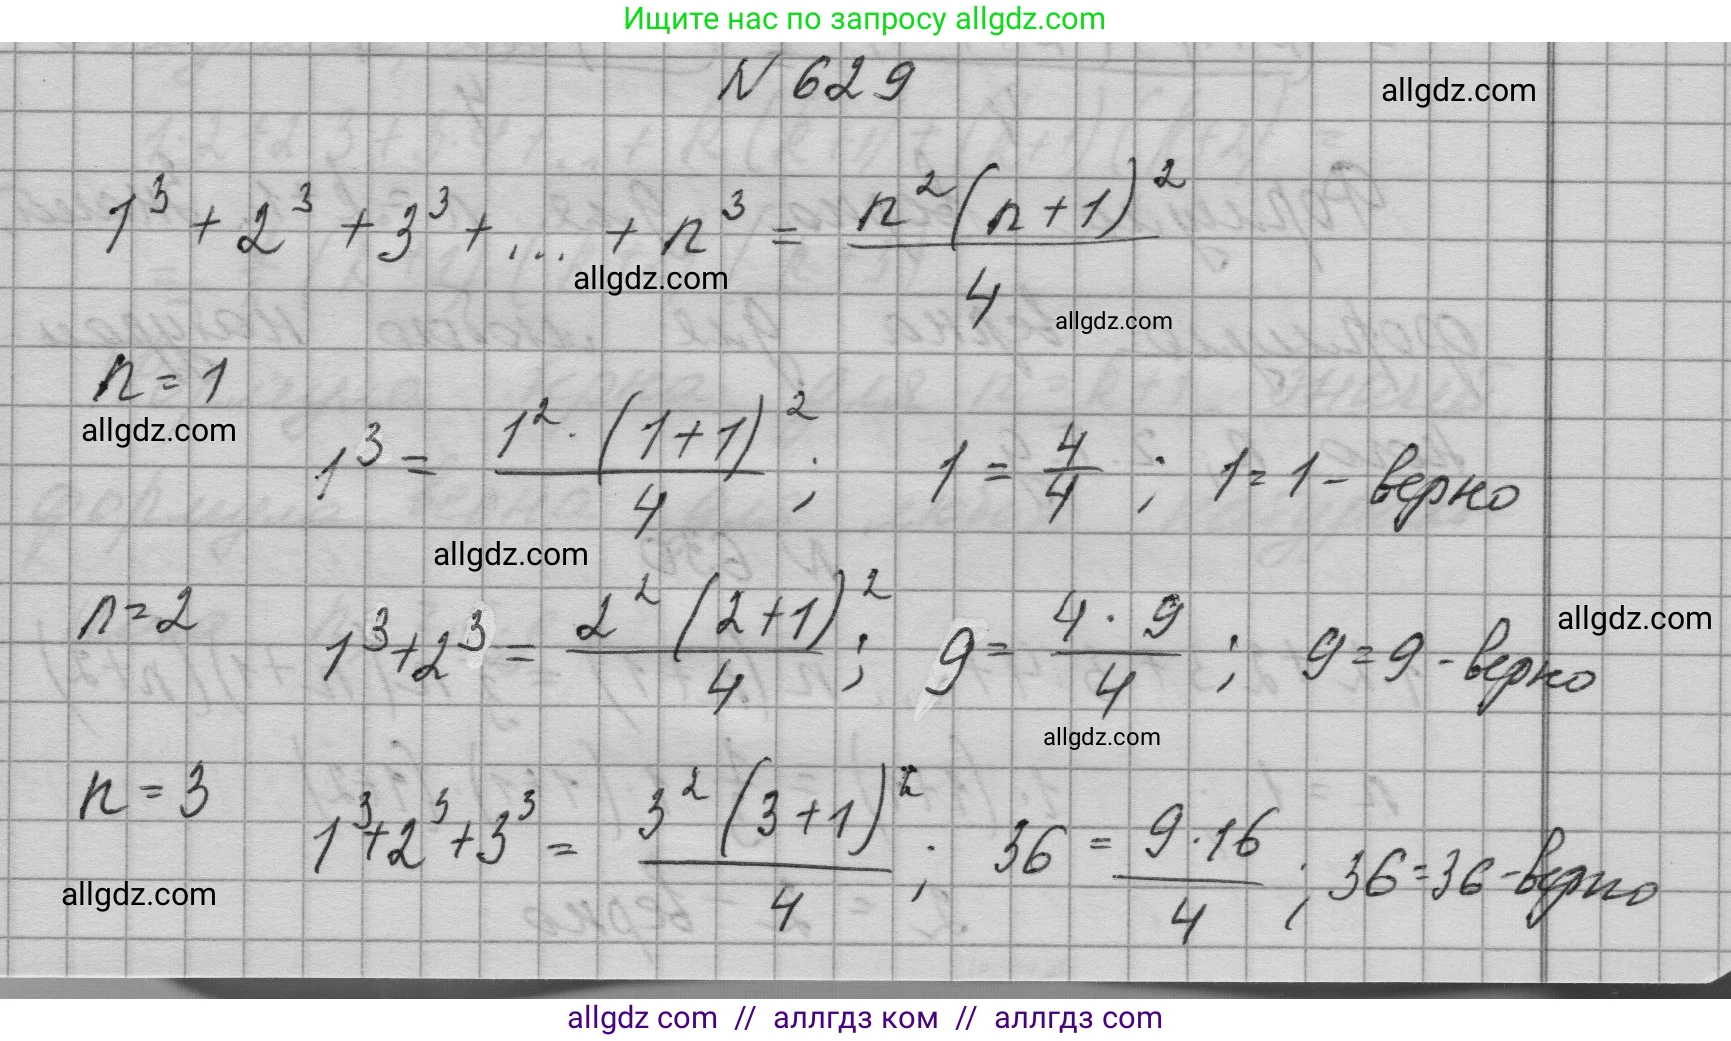 Ищите нас по запросу allgdz.com
N 629
allgdz.com
1³ + 2³ + 3³ + ... + n³ = n²(n+1)²/4
allgdz.com
allgdz.com
n = 1
allgdz.com
1³ = 1² · (1+1)²/4 ; 1 = 4/4 ; 1 = 1 – верно
allgdz.com
n = 2 1³+2³ = 2²(2+1)²/4 ; 9 = 4 · 9/4 ; 9 = 9 - верно
allgdz.com
allgdz.com
n = 3 1³+2³+3³ = 3²(3+1)²/4 ; 36 = 9 · 16/4 ; 36 = 36 - верно
allgdz.com
allgdz com // аллгдз ком // аллгдз com